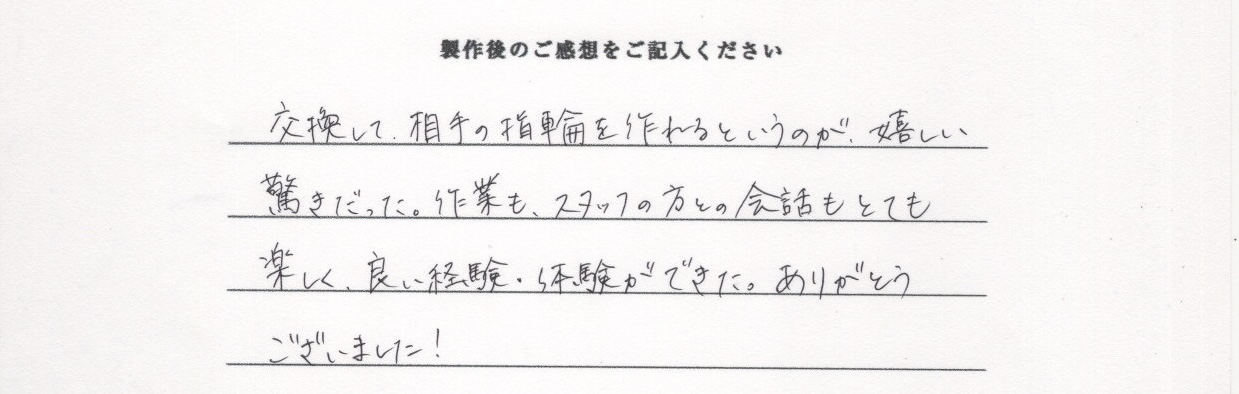 製作後のご感想をご記入ください
交換して、相手の指輪を作れるというのが、嬉しい
驚きだった。作業も、スタッフの方との会話もとても
楽しく、良い経験・体験ができた。ありがとう
ございました！